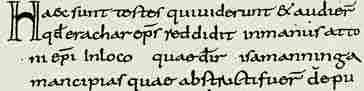 Haec sunt testes qui uiderunt & audier
qd erachar eps reddidit inmanus atto
ni epi Inloco quae dr isamanninga
mancipias quae abstracti fuer de pu